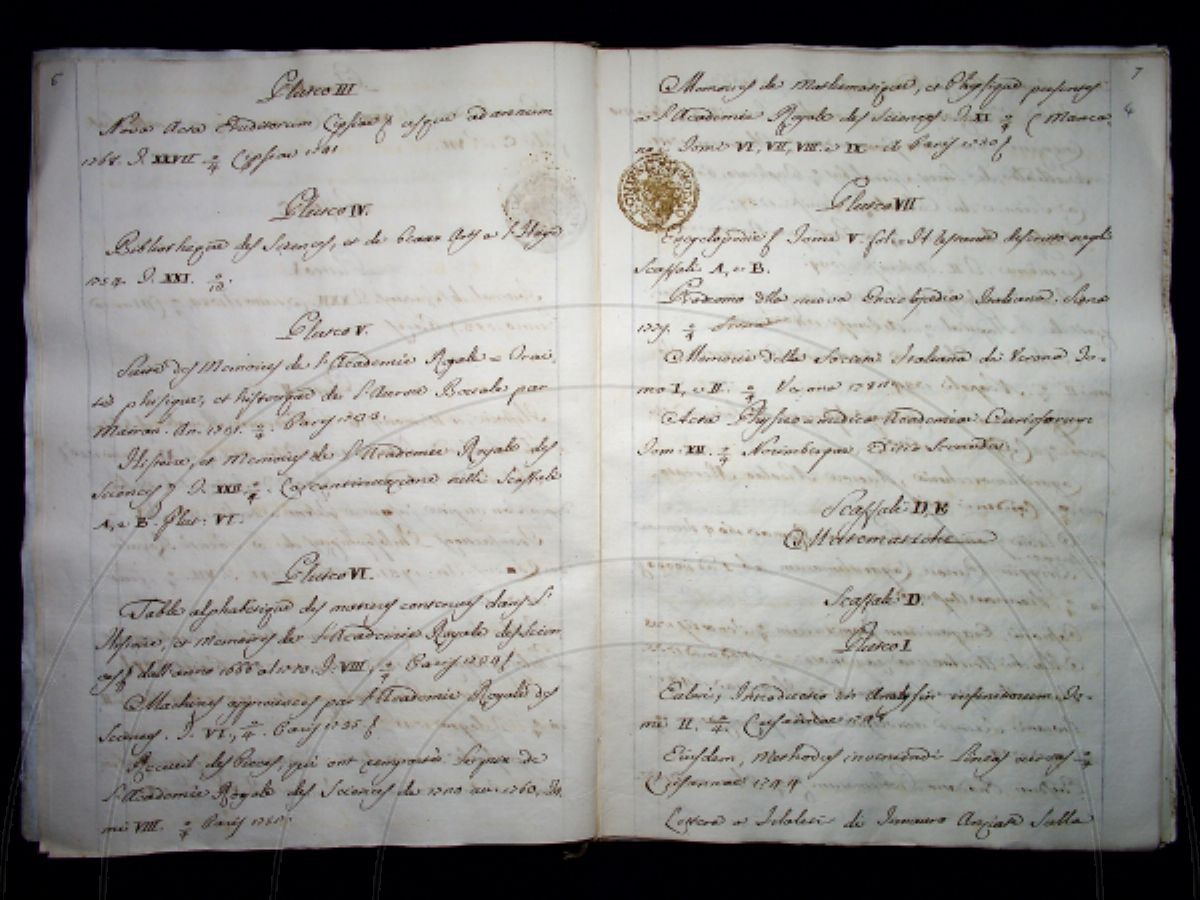 6
Pluteo III
Nova Acta Eruditorum Lipsiae usque ad annum
1768. T. XXVII in 4 Lipsiae
Pluteo IV.
Bibliotheque des Sciences, et de beaux Arts a l'Haye
1754. T. XXI.
Pluteo V.
Suite des Memoires de l'Academie Royale Trai-
té phisique, et historique de l'Aurore Boreale par
Mairan. An. 1731. in 4. Paris 1733.
Histoire, et Memoires de l'Academie Royale des
Sciences T. XXII in 4. Continuazione nelli Scaffali
A, e B. Plut: VI.
Pluteo VI.
Table alphabetique des matieres contenues dans l'
Histoire, et Memoires de l'Academie Royale des Scien-
ces dall'anno 1666 al 1770. T. VIII, in 4 Paris
Machines approuvées par l'Academie Royale des
Sciences. T. VI, in 4. Paris 1735
Recueil des Pieces, qui ont remporté le prix de
l'Academie Royale des Sciences de 1720 au 1760, To-
mi VIII. in 4 Paris
7
4
Memoires de Mathematique, et Phisique presentés
a l'Academie Royale des Sciences. T. XI in 4 (Manca-
no Tomi VI, VII, VIII. e IX Paris 1750
Pluteo VII
Encyclopedie Tomi V. fol. Il restante descritto negli
Scaffali A, e B.
Prodromo della nuova Enciclopedia Italiana. Siena
1779. in 4
Memorie della Societá Italiana di Verona To-
mo I, e II. in 4 Verona
Acta Physico medica Academiae Curiosorum
Tom. XII. in 4 Norimbergae, Editio Secunda
Scaffali D, E
Matematiche
Scaffale D.
Pluteo I.
Euleri, Introductio in Analysin infinitorum To-
mi II. in 4 Lausannae
Eiusdem, Methodus inveniendi Lineas curvas in 4
Lausannae 1744
Lettera a di Ianuario sulla